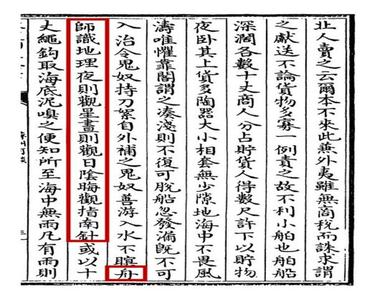 北人賣之云爾本不來此兼外夷雖無商稅而誅求謂
之獻送不論貨物多寡一例責之故不利小舶也舶船
深濶各數十丈商人分占貯貨人得數尺許下以貯物
夜卧其上貨多陶器大小相套無少隙地海中不畏風
濤唯懼靠閣謂之湊淺則不復可脫船忽發漏旣不可
入治令鬼奴持刀絮自外補之鬼奴善游入水不瞑舟
師識地理夜則觀星晝則觀日陰晦觀指南針或以十
丈繩鉤取海底泥嗅之便知所至海中無雨凡有雨則